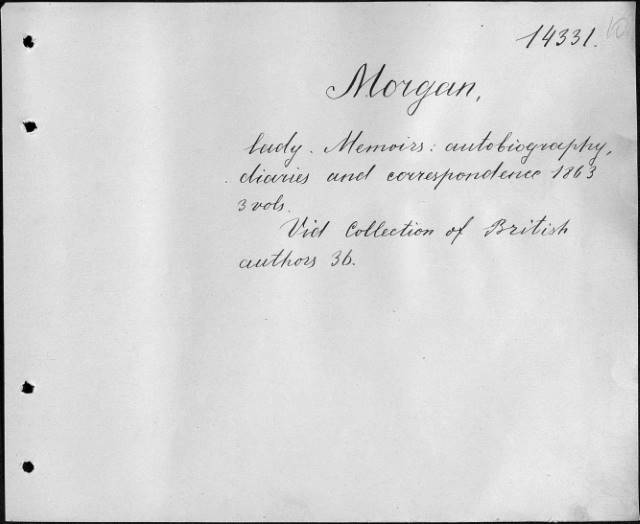 14331.
Morgan,
lady. Memoirs: autobiography,
diaries and correspondence 1863
3 vols.
Vid Collection of British
authors 36.